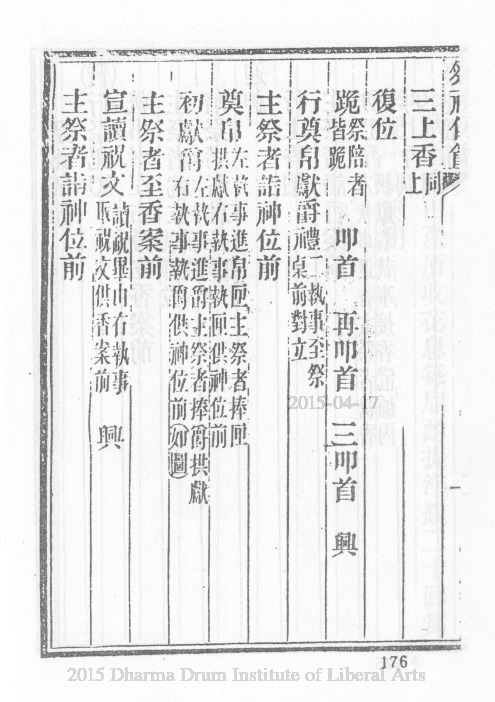 三上香同上
復位
跪祭陪者皆跪　叩首　再叩首　三叩首　興
行奠帛獻爵禮二執事至祭桌前對立
主祭者詣神位前
奠帛左執事進帛匣主祭者捧匣拱獻右執事執匣供神位前
初獻爵左執事進爵主祭者捧爵拱獻右執事執爵供神位前如圖
主祭者至香案前
宣讀祝文讀祝畢由右執事取祝文供香案前　興
主祭者詣神位前
2015-04-17
176
2015 Dharma Drum Institute of Liberal Arts